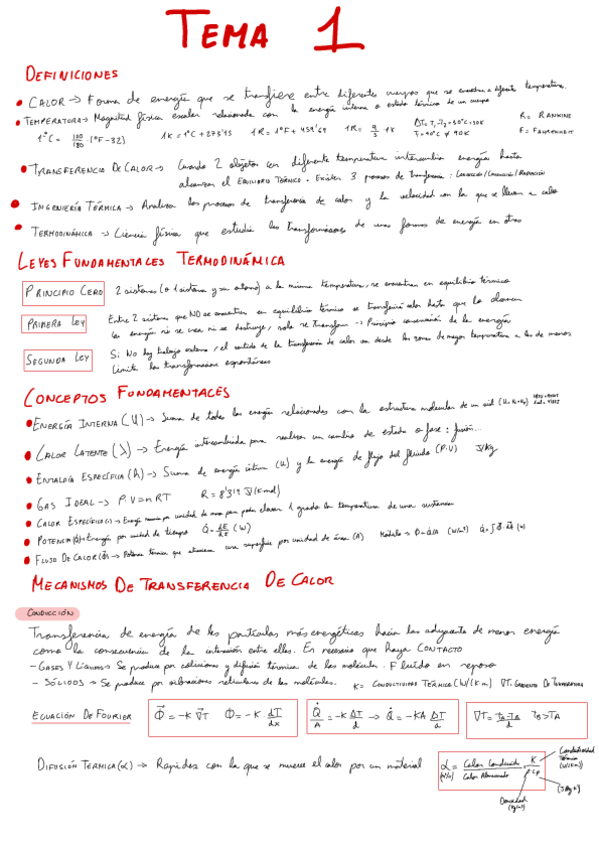 TEMA 1
DEFINICIONES
• CALOR → Forma de energía que se transfiere entre diferentes cuerpos que se encuentran a diferente temperatura.
• TEMPERATURA → Magnitud física escalar relacionada con la energía interna o estado térmico de un cuerpo
1°C = 100/180 · (°F-32) 1K = 1°C + 273'15 1R = 1°F + 459'69 1R = 9/5 · 1K R = RANKINE
F = FAHRENHEIT
• TRANSFERENCIA DE CALOR → Cuando 2 objetos con diferente temperatura intercambian energía hasta
alcanzar el EQUILIBRIO TÉRMICO. Existen 3 procesos de transferencia:
• INGENIERÍA TÉRMICA → Analizan los procesos de transferencia de calor y la velocidad con la que se llevan a cabo
• TERMODINÁMICA → Ciencia física que estudia las transformaciones de unas formas de energía en otras
LEYES FUNDAMENTALES TERMODINÁMICA
PRINCIPIO CERO 2 sistemas (o 1 sistema y su entorno) a la misma temperatura, se encuentran en equilibrio térmico
PRIMERA LEY Entre 2 sistemas que NO se encuentran en equilibrio térmico se transferirá calor hasta que lo alcancen
La energía no se crea ni se destruye, solo se transforma → Principio conservación de la energía
SEGUNDA LEY Si No hay trabajo externo, el sentido de la transferencia de calor va desde las zonas de mayor temperatura a las de menos
Limita las transformaciones espontáneas
CONCEPTOS FUNDAMENTALES
• ENERGÍA INTERNA (U) → Suma de todas las energías relacionadas con la estructura molecular de un
• CALOR LATENTE (λ) → Energía intercambiada para realizar un cambio de estado o fase: fusión...
• ENTALPÍA ESPECÍFICA (h) → Suma de energía interna (u) y la energía de flujo del fluido (P·V) J/kg
• GAS IDEAL → P·V = nRT R = 8'319 J/(K·mol)
• CALOR ESPECÍFICO → Energía necesaria por unidad de masa para poder elevar 1 grado la temperatura de una sustancia
• POTENCIA → Energía por unidad de tiempo Q̇ = dE/dt (W)
• FLUJO DE CALOR (Φ) → Potencia térmica que atraviesa una superficie por unidad de área (A) Módulo → Φ = Q̇/A (W/m²) Q̇ = ∫Φ⃗·dA⃗ (W)
MECANISMOS DE TRANSFERENCIA DE CALOR
CONDUCCIÓN
Transferencia de energía de las partículas más energéticas hacia las adyacentes de menor energía
como la consecuencia de la interacción entre ellas. Es necesario que haya CONTACTO
- GASES Y LÍQUIDOS → Se produce por colisiones y difusión térmica de las moléculas. Fluido en reposo
- SÓLIDOS → Se produce por vibraciones reticulares de las moléculas. K = CONDUCTIVIDAD TÉRMICA (W/(K·m)) ∇T: GRADIENTE DE TEMPERATURA
ECUACIÓN DE FOURIER Φ⃗ = -K ∇⃗T Φ = -K · dT/dx Q̇/A = -K ΔT/d → Q̇ = -KA ΔT/d TB > TA
DIFUSIÓN TÉRMICA (α) → Rapidez con la que se mueve el calor por un material α = Calor Conducido/Calor Almacenado = K/ρ·cp
Conductividad
Térmica
(W/K·m)
Densidad